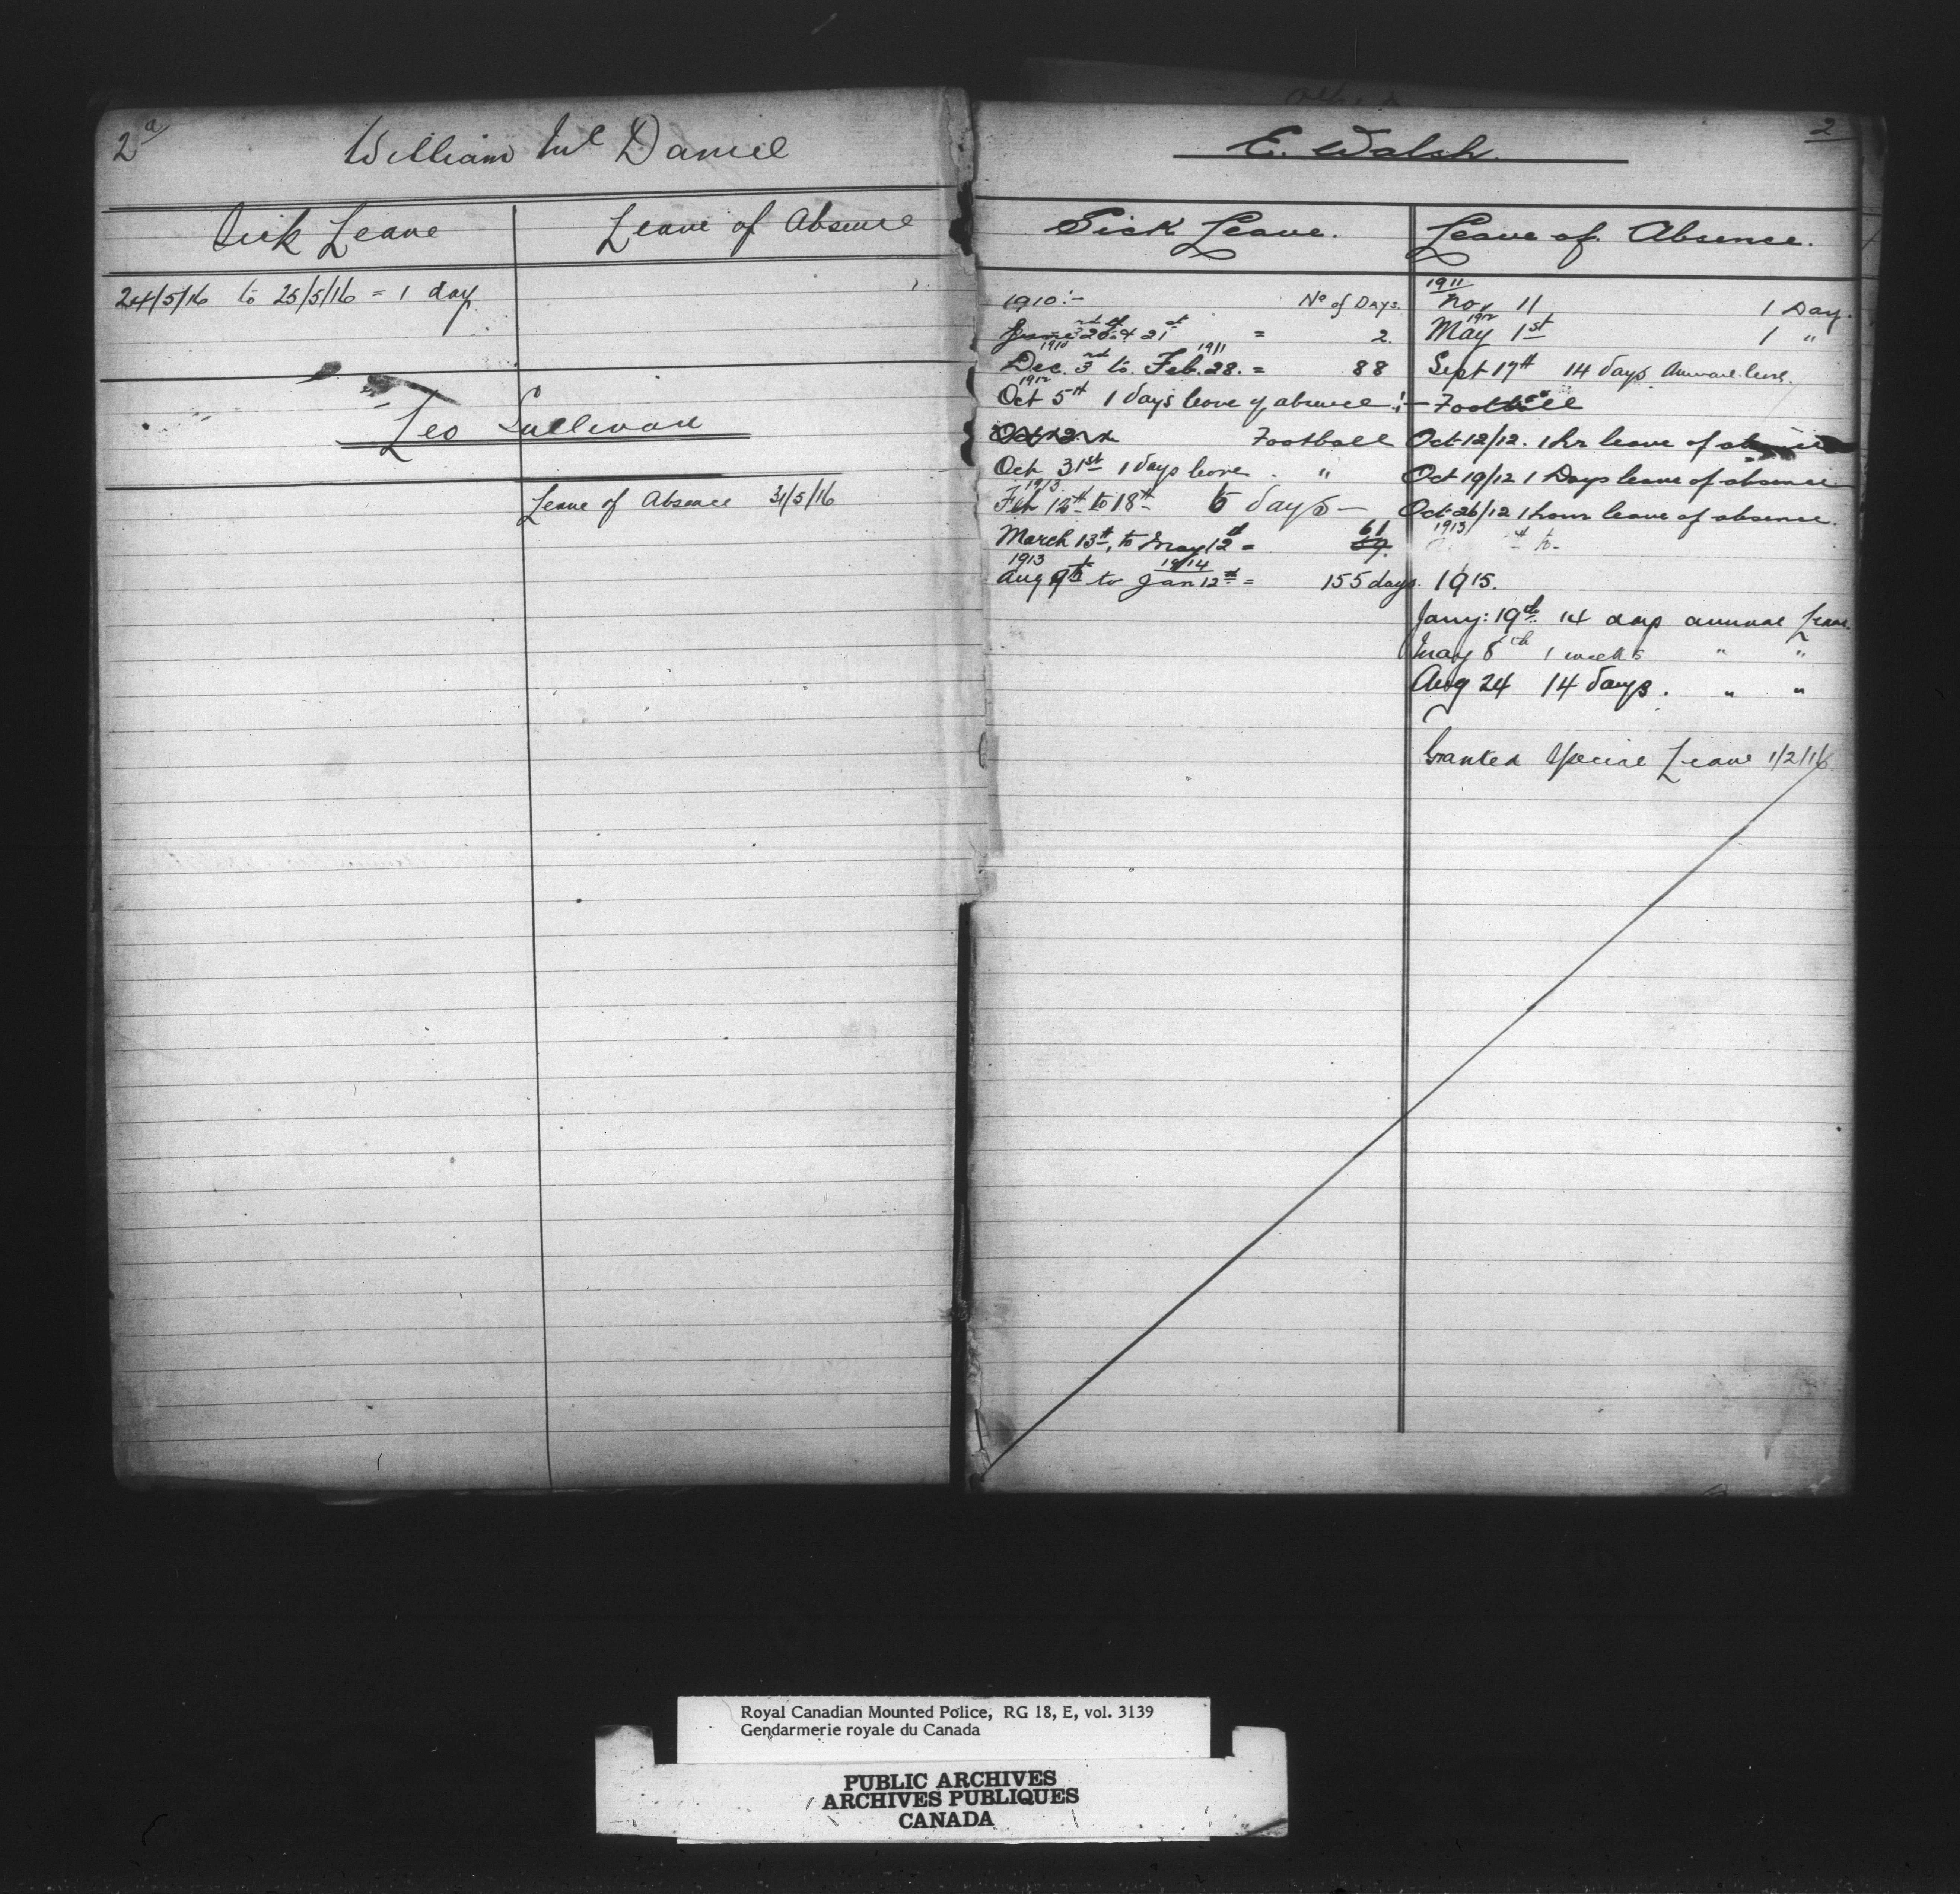 2a
William Mc Daniel
Sick Leave
Leave of Absence
24/5/16 to 25/5/16 = 1 day
Leo Sullivan
Leave of Absence 31/5/16
2
E. Walsh.
Sick Leave.
1910:- No of Days.
June 20th & 21st = 2.
1910 1911
Dec. 3rd to Feb. 28. = 88
1912
Oct 5th 1 days leave of absence :- Football
Football
Oct 31st 1 days leave "
1913
Feb to 18th days -
March 13th, to May 12th = 61
1913 1914
Aug 9th to Jan 12th = 155 days.
Leave of Absence.
1911
Nov 11 1 Day.
1912
May 1st 1 "
Sept 17th 14 days Annual leave.
Oct 12/12. 1 hr leave of absence
Oct 19/12 1 Days leave of absence
Oct 26/12 1 hour leave of absence.
1913
1915.
Jany: 19th 14 days annual Leave.
May 8th 1 week " "
Aug 24 14 days. " "
Granted Special Leave 1/2/16
Royal Canadian Mounted Police, RG 18, E, vol. 3139
Gendarmerie royale du Canada
PUBLIC ARCHIVES
ARCHIVES PUBLIQUES
CANADA